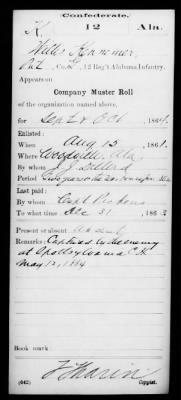 Confederate.
K 12 Ala.
Willis Kennemer
Pvt, Co. K, 12 Reg't Alabama Infantry.
Appears on
Company Muster Roll
of the organization named above,
for Sept & Oct, 1864.
Enlisted:
When Aug 15, 1861.
Where Woodville, Ala
By whom
Period
Last paid:
By whom Capt
To what time Dec 31, 1863
Present or absent Absent
Remarks: Captured by the enemy
at Spottsylvania C.H.
May 12, 1864
Book mark:
(642) Copyist.